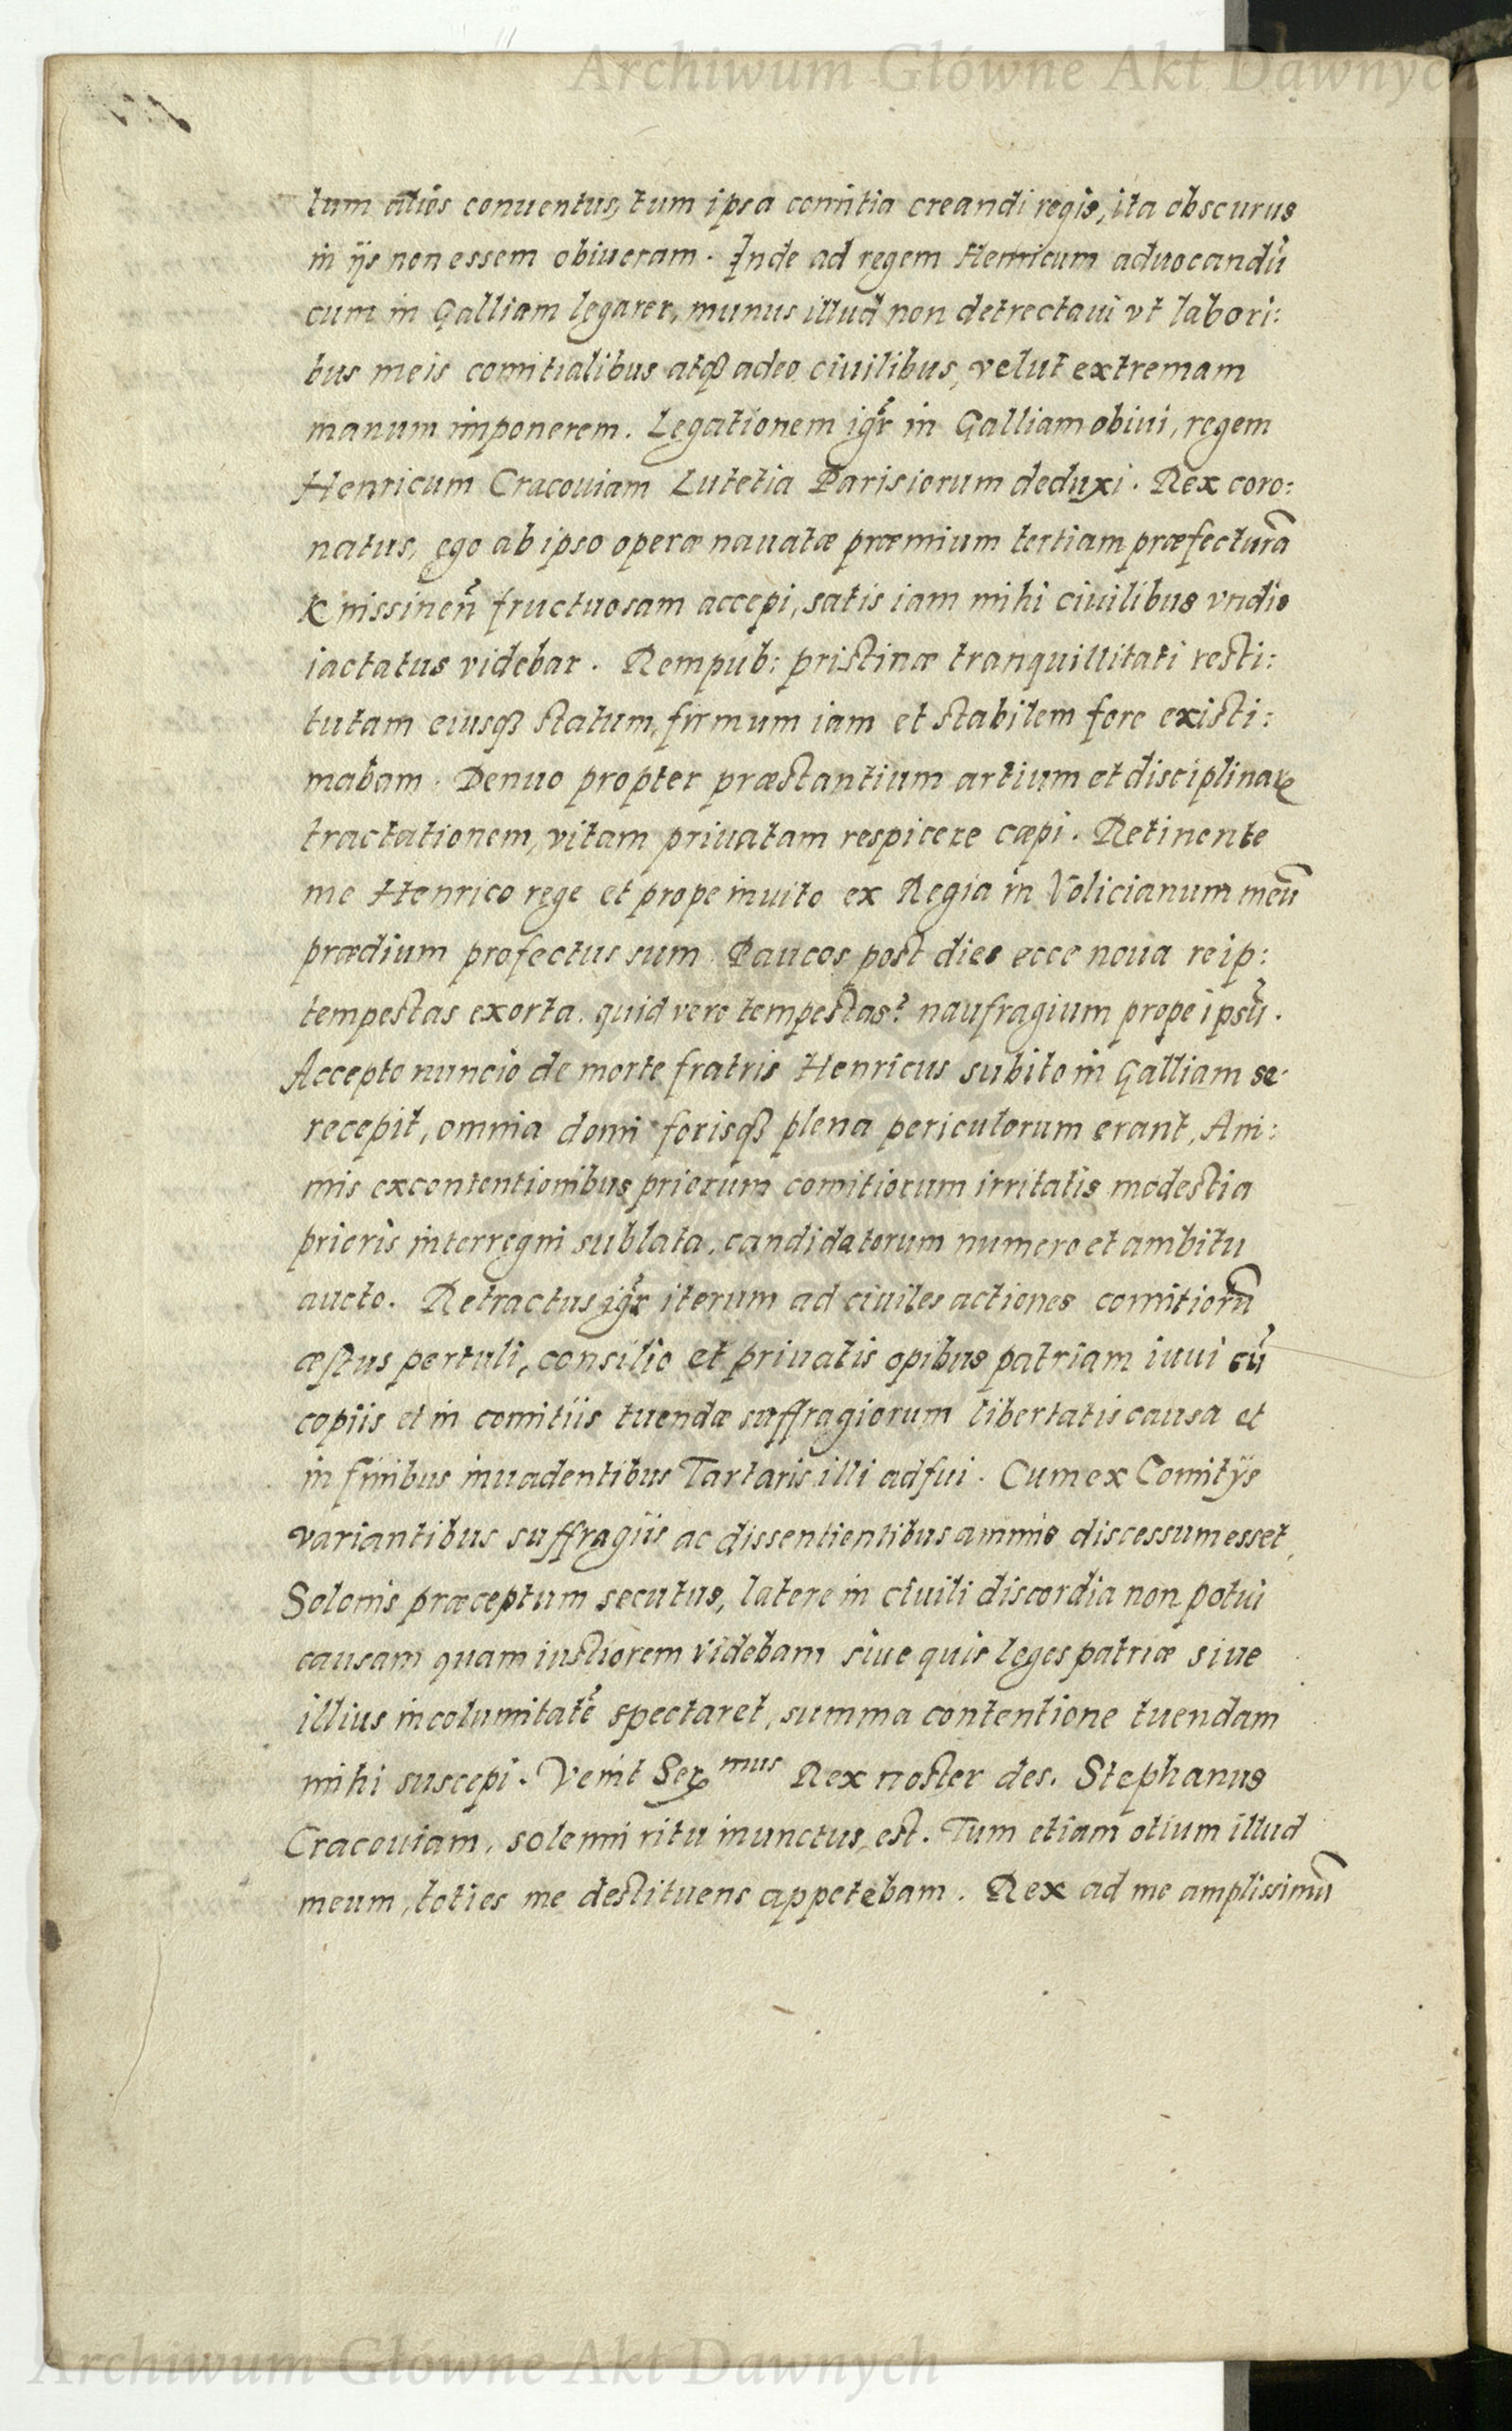 Archiwum Główne Akt Dawnych
tum alios conuentus, tum ipsa comitia creandi regis, ita obscurus
in ijs non essem obiueram. Inde ad regem Henricum aduocandũ
cum in Galliam legarer, munus illud non detrectaui vt labori:
bus meis comitialibus atqꝫ adeo ciuilibus, velut extremam
manum imponerem. Legationem igr̃ in Galliam obiui, regem
Henricum Cracouiam Lutetia Parisiorum deduxi. Rex coro:
natus, ego ab ipso operæ nauatæ præmium tertiam præfecturã
Knissineñ fructuosam accepi, satis iam mihi ciuilibus vndis
iactatus videbar. Rempub: pristinæ tranquillitati resti:
tutam eiusqꝫ statum, firmum iam et stabilem fore existi:
mabam. Denuo propter præstantium artium et disciplinaꝝ
tractationem, vitam priuatam respicere cæpi. Retinente
me Henrico rege et prope inuito ex Regia in Volicianum meũ
prædium profectus sum. Paucos post dies ecce noua reip:
tempestas exorta. quid vero tempestas? naufragium prope ipsũ.
Accepto nuncio de morte fratris Henricus subito in Galliam se
recepit, omnia domi forisqꝫ plena periculorum erant, Ani:
mis excontentionibus priorum comitiorum irritatis modestia
prioris interregni sublata, candidatorum numero et ambitu
aucto. Retractus igr̃ iterum ad ciuiles actiones comitiorũ
æstus pertuli, consilio et priuatis opibus patriam iuui cũ
copiis et in comitiis tuendæ suffragiorum libertatis causa et
in finibus inuadentibus Tartaris illi adfui. Cum ex Comitijs
variantibus suffragiis ac dissentientibus animis discessum esset,
Solonis præceptum secutus, latere in ciuili discordia non potui
causam quam iustiorem videbam siue quis leges patriæ siue
illius incolumitatẽ spectaret, summa contentione tuendam
mihi suscepi. Venit Serᵐᵘˢ Rex noster des. Stephanus
Cracouiam, solemni ritu inunctus est. Tum etiam otium illud
meum, toties me destituens appetebam. Rex ad me amplissimũ
Archiwum Główne Akt Dawnych